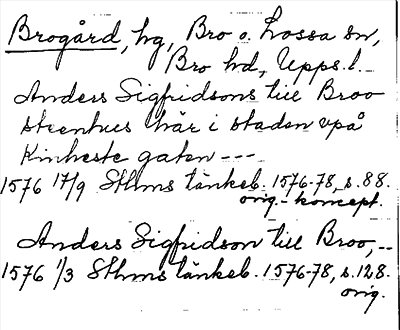 Brogård, hg, Bro o. Lossa sn,
Bro hd, Upps. l.
Anders Sigfridsons till Broo
steenhus här i staden vpå
Kinheste gaten ---
1576 17/9 Sthms tänkeb. 1576-78, s. 88.
orig. - koncept.
Anders Sigfridson till Broo, --
1576 1/3 Sthms tänkeb. 1576-78, s. 128.
orig.